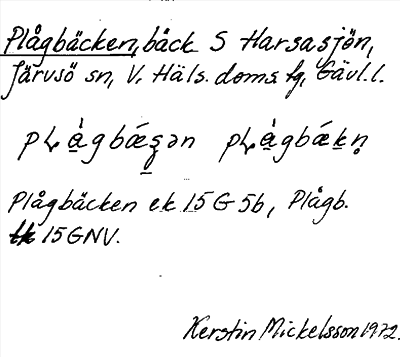 Plågbäcken, bäck S Harsasjön,
Järvsö sn, V. Häls. doms. fg, Gävl. l.
Plågbäcken ek 15 G 5b, Plågb.
tk 15 GNV.
Kerstin Mickelsson 1972.